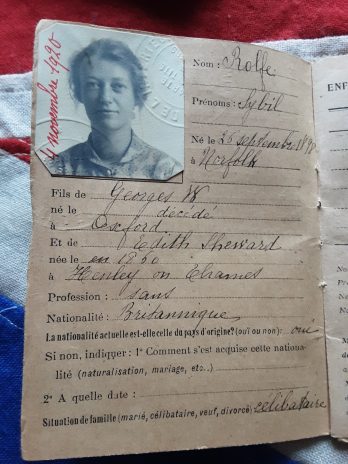 4 novembre 1920
Nom : Rolfe
Prénoms : Sybil
Né le 26 septembre
à Norfolk
Fils de Georges W
né le décidé
à Oxford
Et de Edith Sheward
née le en 1860
à Henley on Thames
Profession : sans
Nationalité : Britannique
La nationalité actuelle est-elle celle du pays d'origine? (oui ou non): oui
Si non, indiquer : 1° Comment s'est acquise cette natio-
lité (naturalisation, mariage, etc..)
2° A quelle date :
Situation de famille (marié, célibataire, veuf, divorcé) célibataire
ENF